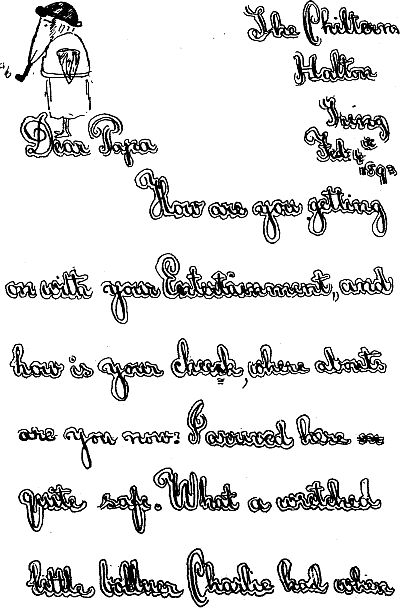 The Chiltern
Halton
Tring
Feb 4th
189
Dear Papa
How are you getting
on with your Entertainment, and
how is your cheek, where abouts
are you now? I arrived here
quite safe. What a wretched
little Charlie had when